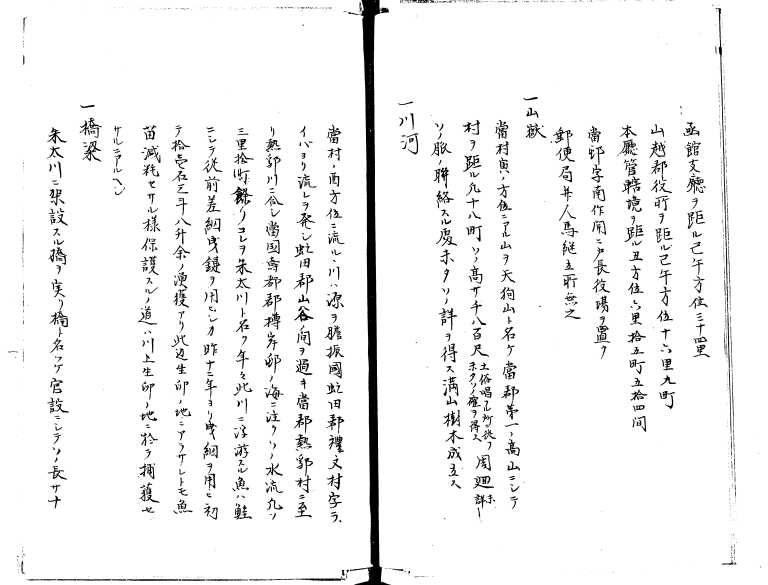 函館支廳ヲ距ル己午方位三十四里
山越郡役所ヲ距ル己午方位十六里九町
本廳管轄境ヲ距ル丑方位六里拾五町五拾四間
當邨字南作開ニ戸長役場ヲ置ク
郵便局并人馬継立所無之
一山嶽
當村寅ノ方位ニアル山ヲ天狗山ト名ケ當郡第一ノ高山ニシテ
村ヲ距ル九十八町ソノ高サ千八百尺土俗唱フル所
未タソノ確ヲ得ス周廻未詳
ソノ脈ノ聯絡スル處未タソノ詳ヲ得ス満山樹木成立ス
一川河
當村ノ西方位ニ流ルヽ川ハ源ヲ膽振國虻田郡禮文村字ラ
イバヨリ流レヲ発シ虻田郡山谷間ヲ過キ當郡熱郛村ニ至
リ熱郛川ニ會シ當国壽都郡樽岸邨ノ海ニ注クソノ水流凡ソ
三里拾町餘リコレヲ朱太川ト名ク年々此川ニ浮游スル魚ハ鮭
ニシテ従前差網曳鏝ヲ用ヒシカ昨十二年ヨリ曳網ヲ用ヒ初
テ拾壱石三斗八升余ノ漁獲アリ此辺生卵ノ地ニアラサレトモ魚
苗減耗セサル様保護スルノ道ハ川上生卵ノ地ニ於テ捕獲セ
サルニアルヘシ
一橋梁
朱太川ニ架設スル橋ヲ実リ橋ト名ツケ官設ニシテソノ長サナ